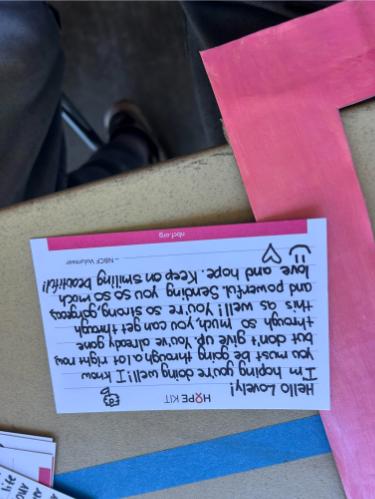 HOPE KIT
Hello Lovely!
I'm hoping you're doing well! I know
you must be going through a lot right now,
but don't give up. You've already gone
through so much, you can get through
this as well! You're so strong, gorgeous,
and powerful. Sending you so so much
love and hope. Keep on smiling beautiful!
– NBCF Volunteer
nbcf.org
life
your